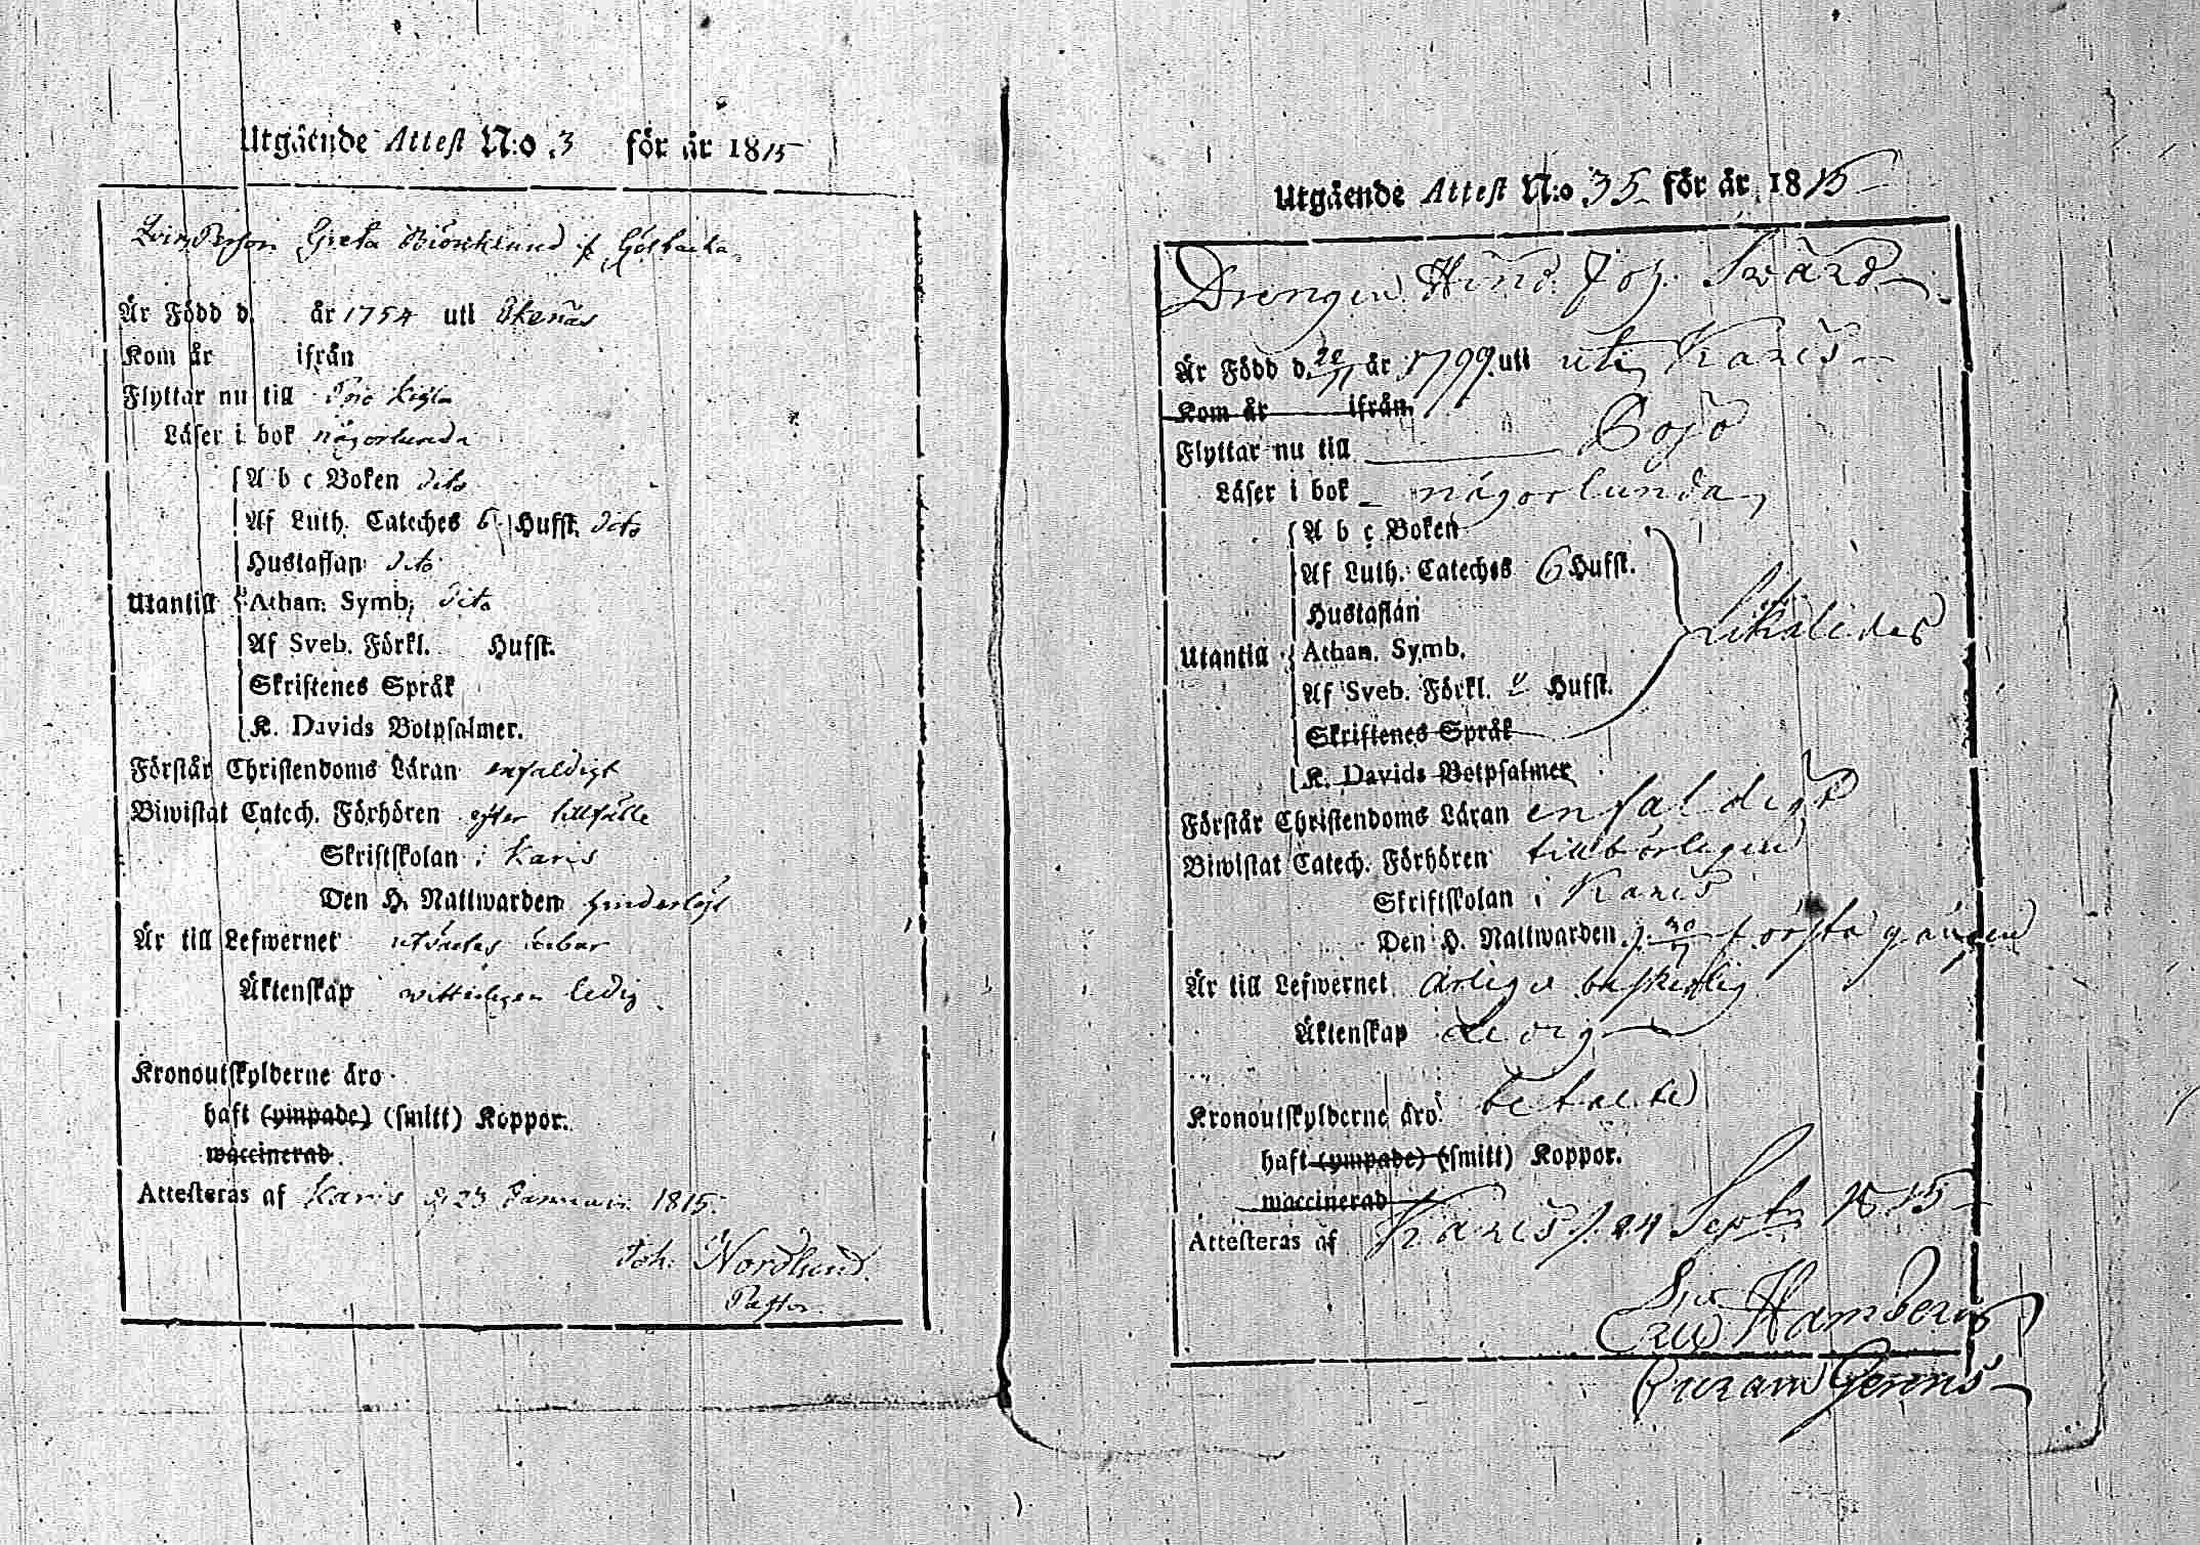 Utgående Attest N:o 3 för år 1815
Qvins Person Greta Biörcklund fr Gölbacka
Är Född d. år 1754 uti Ekenäs
Kom år ifrån
Flyttar nu till
Läser i bok någorlunda
A b c Boken dito
Af Luth. Cateches 6 Hufst. dito
Hustaflan dito
Utantill Athan. Symb. dito
Af Sveb. Förkl. Hufst.
Skriftenes Språk
K. Davids Botpsalmer.
Förstår Christendoms Läran enfaldigt
Biwistat Catech. Förhören efter tillfälle
Skriftskolan i Karis
Den H. Nattwarden hinderlöst
Är till Lefwernet ärbar
Äktenskap witterligen ledig
Kronoutskylderne äro
haft (ympade) (smitt) Koppor.
waccinerad
Attesteras af Karis d 23 Januarii 1815.
Joh. Nordlund.
Pastor.
Utgående Attest N:o 35 för år 1815
Drengen Hind. Joh. Swärd
Är Född d. 22/11 år 1799 uti uti Karis
Kom år ifrån
Flyttar nu till Bojo
Läser i bok någorlunda
A b c Boken
Af Luth. Cateches 6 Hufst.
Hustaflan
Utantill Athan. Symb. Likaledes
Af Sveb. Förkl. Hufst.
Skriftenes Språk
K. Davids Botpsalmer
Förstår Christendoms Läran enfaldigt
Biwistat Catech. Förhören tillbörligen
Skriftskolan i Karis
Den H. Nattwarden första gången
Är till Lefwernet ärlig o beskedlig
Äktenskap ledig
Kronoutskylderne äro betalte
haft (ympade) (smitt) Koppor.
waccinerad
Attesteras af Karis d. 24 Septr 1815
Eric Hamberg